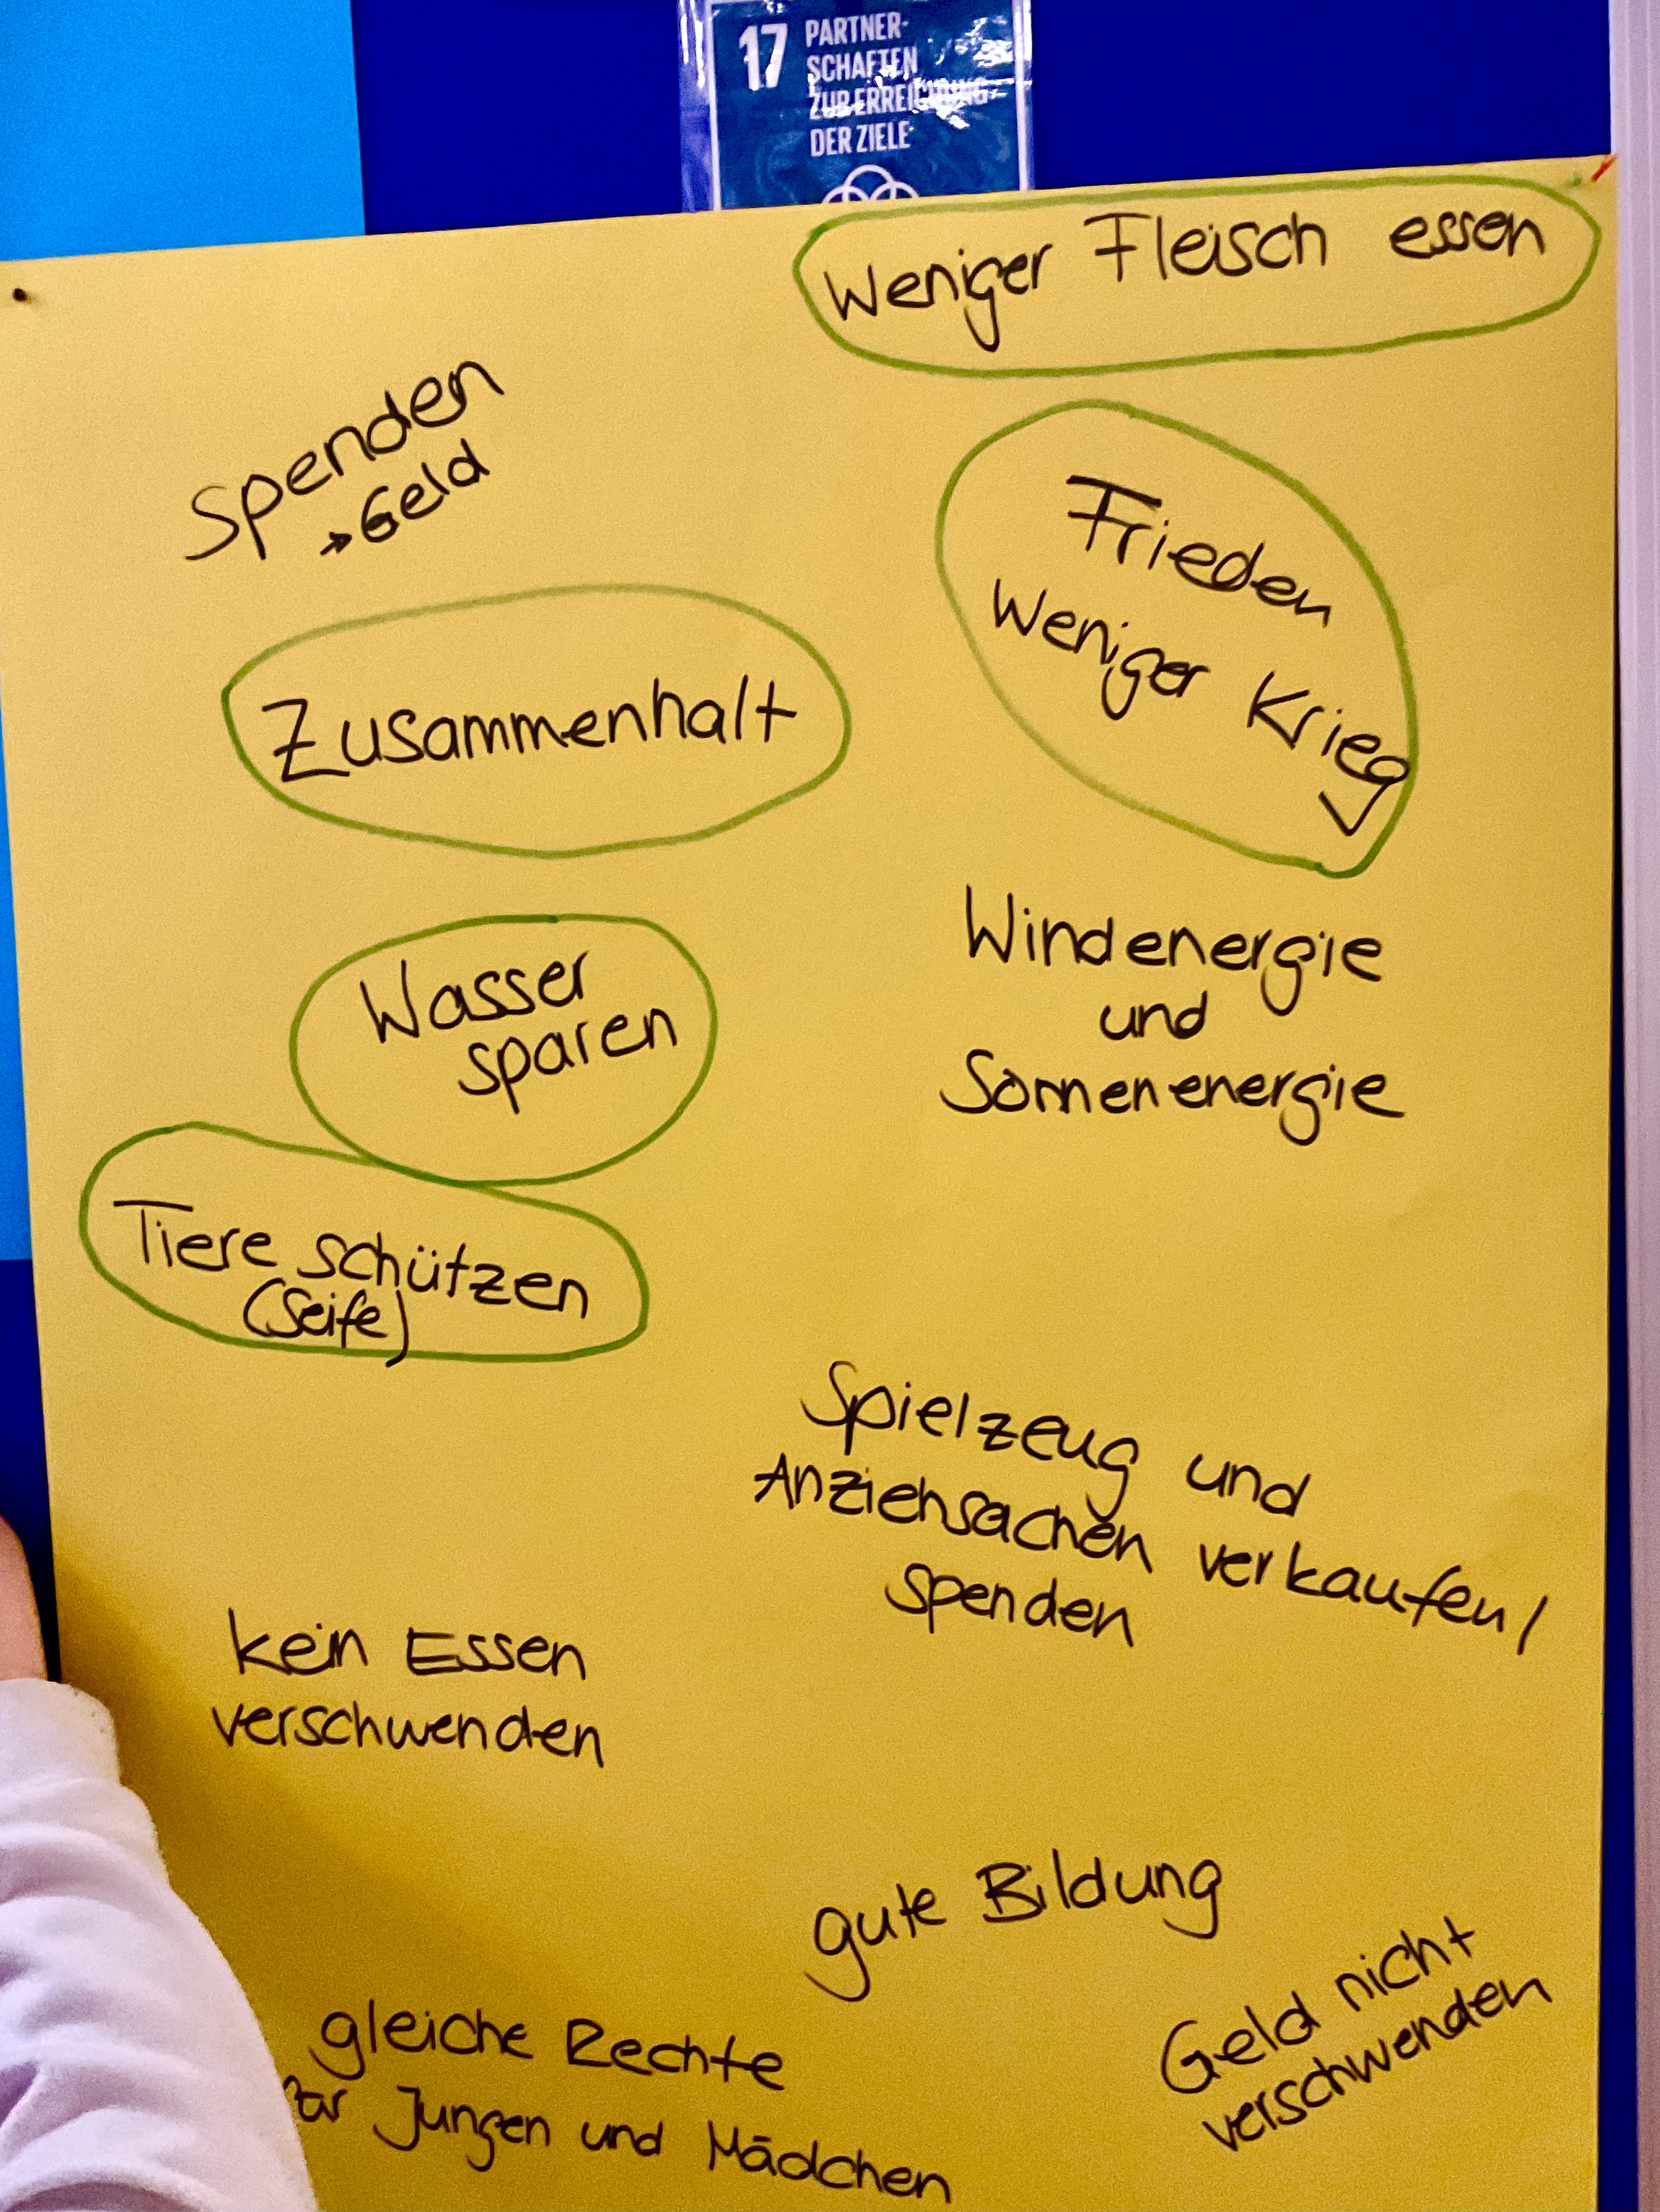 17 PARTNER-
SCHAFTEN
ZUR ERREICHUNG
DER ZIELE
Weniger Fleisch essen
Spenden
→ Geld
Frieden
Weniger Krieg
Zusammenhalt
Wasser
sparen
Windenergie
und
Sonnenenergie
Tiere schützen
(Seife)
Spielzeug und
Anziehsachen verkaufen/
spenden
kein Essen
verschwenden
gute Bildung
Geld nicht
verschwenden
gleiche Rechte
für Jungen und Mädchen